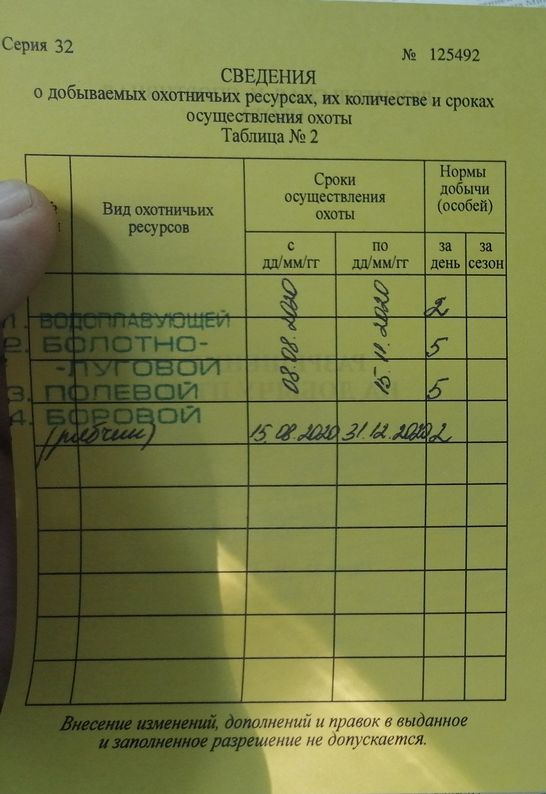 Серия 32
№ 125492
СВЕДЕНИЯ
о добываемых охотничьих ресурсах, их количестве и сроках
осуществления охоты
Таблица № 2
Вид охотничьих
ресурсов
Сроки
осуществления
охоты
Нормы
добычи
(особей)
с
дд/мм/гг
по
дд/мм/гг
за
день
за
сезон
1. ВОДОПЛАВУЮЩЕЙ
2. БОЛОТНО-
-ЛУГОВОЙ
3. ПОЛЕВОЙ
08.08.2020
15.11.2020
2
5
5
4. БОРОВОЙ
(рябчик) 15.08.2020 31.12.2020 2
Внесение изменений, дополнений и правок в выданное
и заполненное разрешение не допускается.